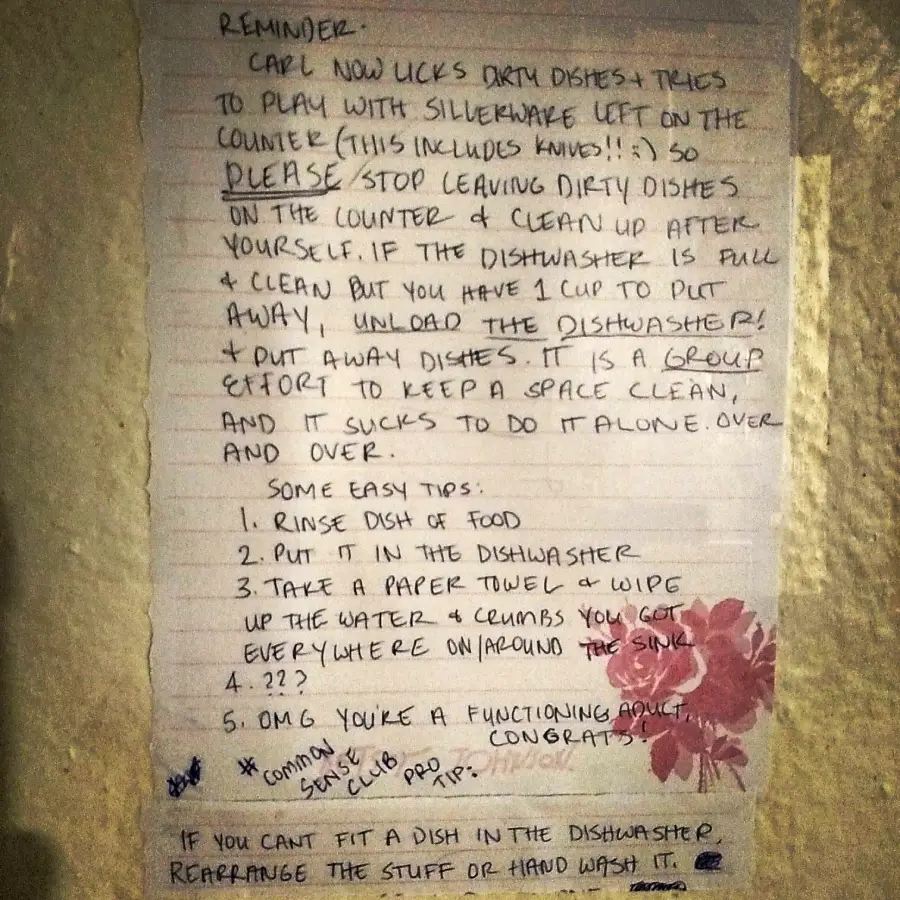 REMINDER.
CARL NOW LICKS DIRTY DISHES + TRIES
TO PLAY WITH SILLERWARE LEFT ON THE
COUNTER (THIS INCLUDES KNIVES!! :) SO
PLEASE STOP LEAVING DIRTY DISHES
ON THE COUNTER & CLEAN UP AFTER
YOURSELF. IF THE DISHWASHER IS FULL
& CLEAN BUT YOU HAVE 1 CUP TO PUT
AWAY, UNLOAD THE DISHWASHER!
+ PUT AWAY DISHES. IT IS A GROUP
EFFORT TO KEEP A SPACE CLEAN,
AND IT SUCKS TO DO IT ALONE. OVER
AND OVER.
SOME EASY TIPS:
1. RINSE DISH OF FOOD
2. PUT IT IN THE DISHWASHER
3. TAKE A PAPER TOWEL & WIPE
UP THE WATER & CRUMBS YOU GOT
EVERYWHERE ON/AROUND THE SINK
4. ???
5. OMG YOU'RE A FUNCTIONING ADULT,
CONGRATS!
# COMMON SENSE CLUB PRO TIP:
JOHNSON
IF YOU CANT FIT A DISH IN THE DISHWASHER,
REARRANGE THE STUFF OR HAND WASH IT.